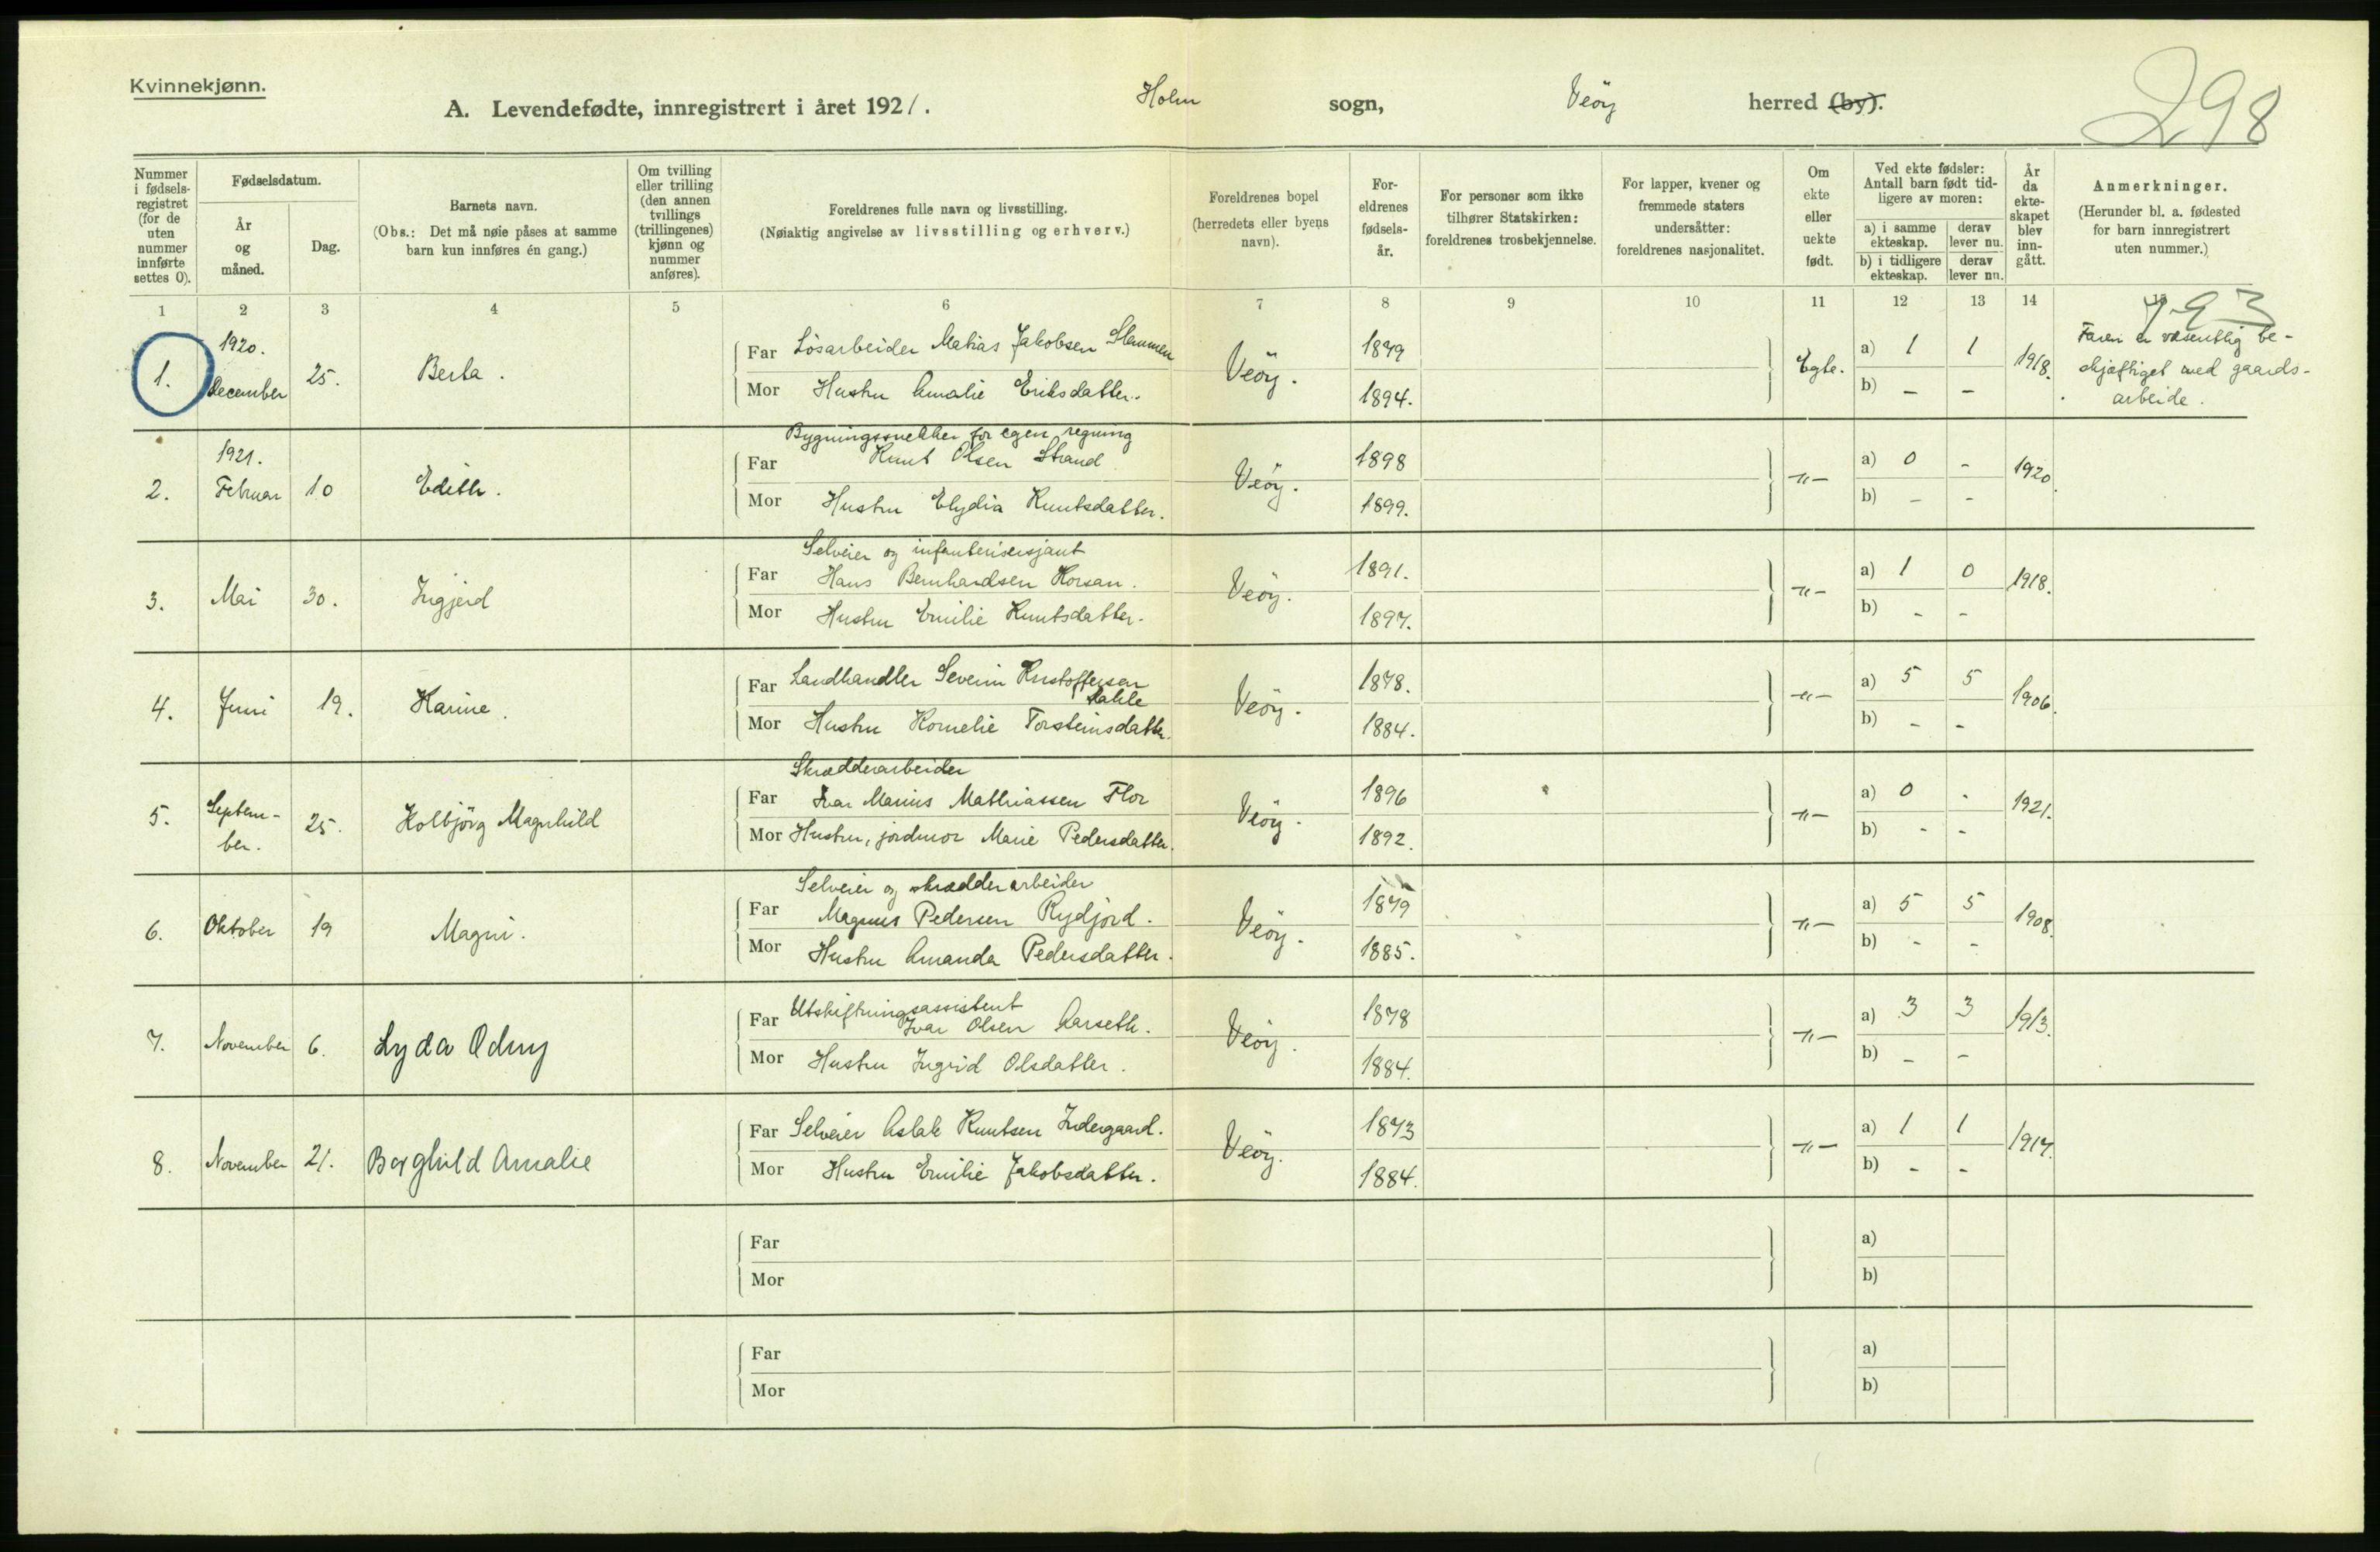 Kvinnekjønn.
A. Levendefødte, innregistrert i året 1921. Holm sogn, Veöy herred (by).
298
Nummer i fødselsregistret (for de uten nummer innførte settes 0).
Fødselsdatum.
År og måned.
Dag.
Barnets navn.
(Obs.: Det må nøie påses at samme barn kun innføres én gang.)
Om tvilling eller trilling (den annen tvillings (trillingenes) kjønn og nummer anføres).
Foreldrenes fulle navn og livsstilling.
(Nøiaktig angivelse av livsstilling og erhverv.)
Foreldrenes bopel (herredets eller byens navn).
Foreldrenes fødselsår.
For personer som ikke tilhører Statskirken: foreldrenes trosbekjennelse.
For lapper, kvener og fremmede staters undersåtter: foreldrenes nasjonalitet.
Om ekte eller uekte født.
Ved ekte fødsler: Antall barn født tidligere av moren:
a) i samme ekteskap. derav lever nu.
b) i tidligere ekteskap. derav lever nu.
År da ekteskapet blev inngått.
Anmerkninger.
(Herunder bl. a. fødested for barn innregistrert uten nummer.)
1 2 3 4 5 6 7 8 9 10 11 12 13 14
1. 1920. December 25. Berta.
Far Lösarbeider Matias Jakobsen Stammen
Mor Hustru Amalie Eriksdatter.
Veöy. 1879 1894. Egte. a) 1 1 b) – – 1918.
Faren er væsentlig be-
skjæftiget med gaards-
arbeide.
2. 1921. Februar 10 Edith.
Bygningssnekker for egen regning
Far Knut Olsen Strand
Mor Hustru Elydia Knutsdatter.
Veöy. 1898 1899. –"– a) 0 - b) - - 1920.
3. Mai 30. Ingjerd
Selveier og infanterisersjant
Far Hans Bernhardsen Horsan.
Mor Hustru Emilie Knutsdatter.
Veöy. 1891. 1897. –"– a) 1 0 b) - - 1918.
4. Juni 19. Karine.
Far Landhandler Severin Kristoffersen
Dahle
Mor Hustru Kornelie Torsteinsdatter.
Veöy. 1878. 1884. –"– a) 5 5 b) - - 1906.
5. September. 25. Kolbjörg Magnhild
Skrædderarbeider
Far Ivar Marius Mathiassen Flor
Mor Hustru, jordmor Marie Pedersdatter.
Veöy. 1896 1892. –"– a) 0 - b) - - 1921.
6. Oktober 19 Magni.
Selveier og skrædderarbeider
Far Magnus Pedersen Rydjord.
Mor Hustru Amanda Pedersdatter.
Veöy. 1879 1885. –"– a) 5 5 b) - - 1908.
7. November 6. Lyda Odny
Utskiftningsassistent
Far Ivar Olsen Aarseth.
Mor Hustru Ingrid Olsdatter.
Veöy. 1878 1884. –"– a) 3 3 b) – – 1913.
8. November 21. Borghild Amalie
Far Selveier Aslak Knutsen Indergaard.
Mor Hustru Emilie Jakobsdatter.
Veöy. 1873 1884. –"– a) 1 1 b) - - 1917.
Far a)
Mor b)
Far a)
Mor b)